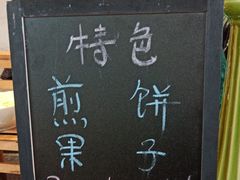 特色
煎饼
果子